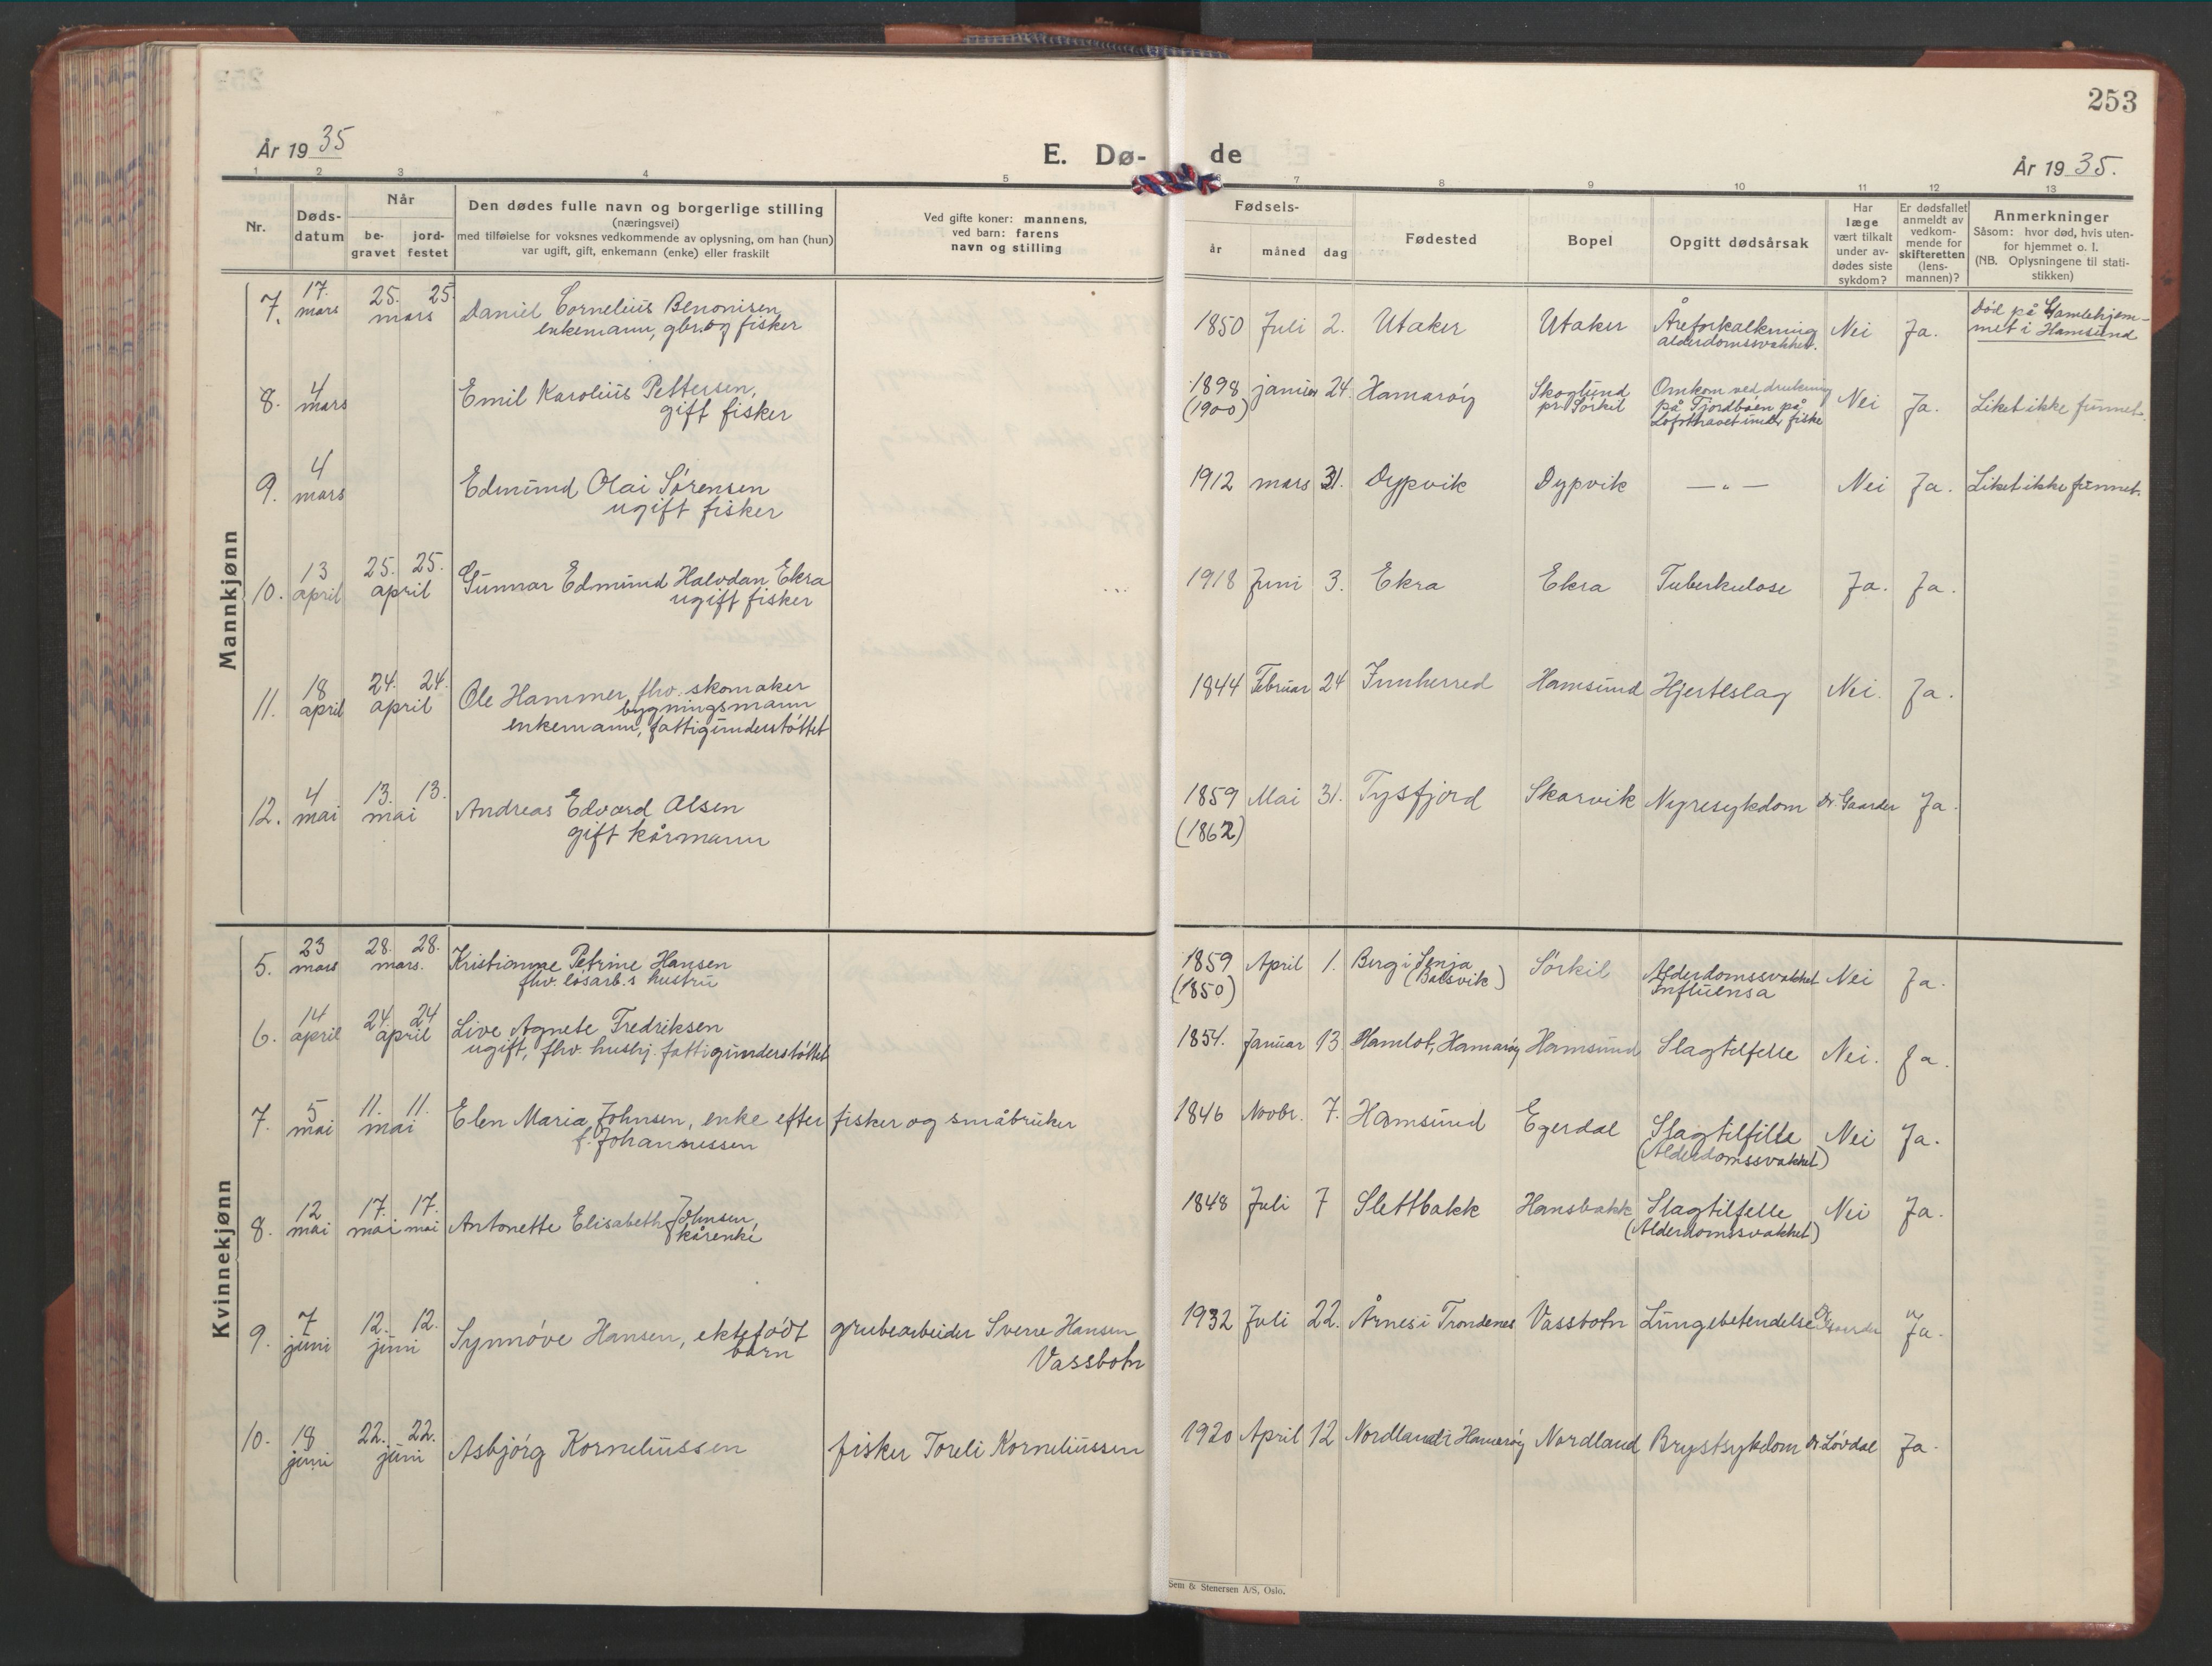 253
År 1935
E. Dø-de
År 1935.
1 2 3 4 5 6 7 8 9 10 11 12 13
Nr.
Døds-datum
Når
be-gravet
jord-festet
Den dødes fulle navn og borgerlige stilling
(næringsvei)
med tilføielse for voksnes vedkommende av oplysning, om han (hun)
var ugift, gift, enkemann (enke) eller fraskilt
Ved gifte koner: mannens,
ved barn: farens
navn og stilling
Fødsels-
år måned dag
Fødested
Bopel
Opgitt dødsårsak
Har læge vært tilkalt under av-dødes siste sykdom?
Er dødsfallet anmeldt av vedkom-mende for skifteretten (lens-mannen)?
Anmerkninger
Såsom: hvor død, hvis uten-
for hjemmet o. l.
(NB. Oplysningene til stati-
stikken)
Mannkjønn
7. 17. mars 25. mars 25. Daniel Cornelius Benonisen 1850 Juli 2. Utaker Utaker Åreforkalkning Nei Ja. Død på Gamlehjem-
enkemann, gbr. og fisker alderdomssvakhet. met i Hamsund
8. 4 mars Emil Karolius Pettersen, 1898 januar 24. Hamarøy Skoglund Omkom ved drukning Nei Ja. Liket ikke funnet.
gift fisker (1900) pr. Sørkil på Fjordbåen på
Lofothavet under fiske
9. 4 mars Edmund Olai Sørensen 1912 mars 31. Dypvik Dypvik — " — Nei Ja. Liket ikke funnet.
ugift fisker
10. 13 april 25. april 25. Gunnar Edmund Halvdan Ekra 1918 Juni 3. Ekra Ekra Tuberkulose Ja. Ja.
ugift fisker
11. 18 april 24. april 24. Ole Hammer, fhv. skomaker 1844 Februar 24 Innherred Hamsund Hjerteslag Nei. Ja.
bygningsmann
enkemann, fattigunderstøttet
12. 4 mai 13. mai 13. Andreas Edvard Olsen 1859 Mai 31. Tysfjord Skarvik Nyresykdom Dr. Gaarder Ja.
gift kårmann (1862)
Kvinnekjønn
5. 23 mars 28. mars. 28. Kristianne Petrine Hansen 1859 April 1. Berg i Senja Sørkil Alderdomssvakhet Nei Ja.
fhv. løsarb.s hustru (1850) (Balsvik) Influensa
6. 14 april 24. april 24 Live Agnete Fredriksen 1854. Januar 13 Hamlot, Hamarøy Hamsund Slagtilfelle Nei. Ja.
ugift, fhv. hushj. fattigunderstøttet
7. 5 mai 11. mai 11. Elen Maria Johnsen, enke efter fisker og småbruker 1846 Novbr. 7. Hamsund Egerdal Slagtilfelle Nei Ja.
f. Johannessen (Alderdomssvakhet)
8. 12 mai 17. mai 17. mai Antonette Elisabeth Johnsen, 1848 Juli 7 Slettbakk Hansbakk Slagtilfelle Nei Ja.
kårenke (Alderdomssvakhet)
9. 7 juni 12. juni 12. Synnøve Hansen, ektefødt grubearbeider Sverre Hansen 1932 Juli 22. Årnes i Trondenes Vassbotn Lungebetendelse Dr Gaarder Ja.
barn Vassbotn
10. 18 juni 22. juni 22. Asbjørg Korneliussen fisker Toreli Korneliussen 1920 April 12 Nordland i Hamarøy Nordland Brystsykdom Dr Løvdal Ja.
Sem & Stenersen A/S, Oslo.